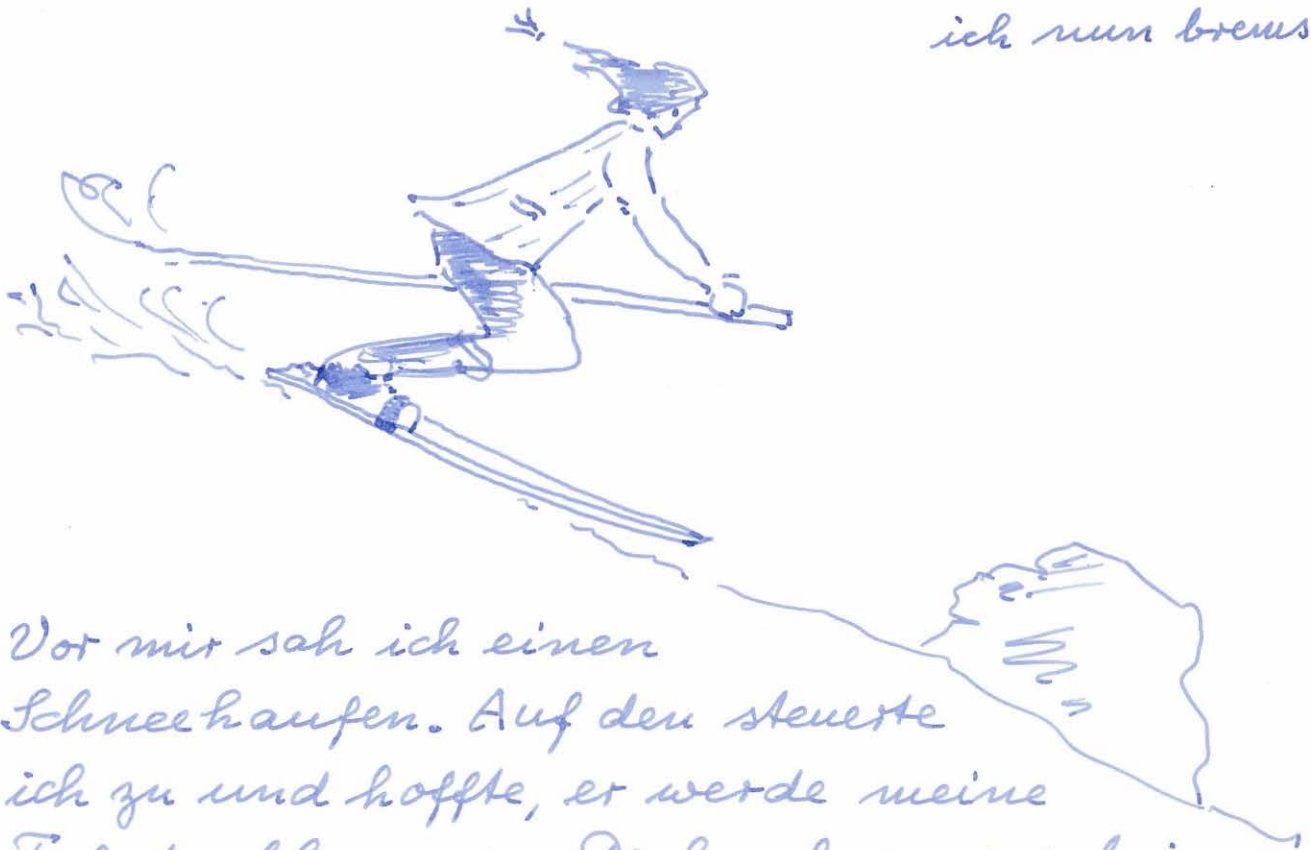 ich nun brems
Vor mir sah ich einen
Schneehaufen. Auf den steuerte
ich zu und hoffte, er werde meine